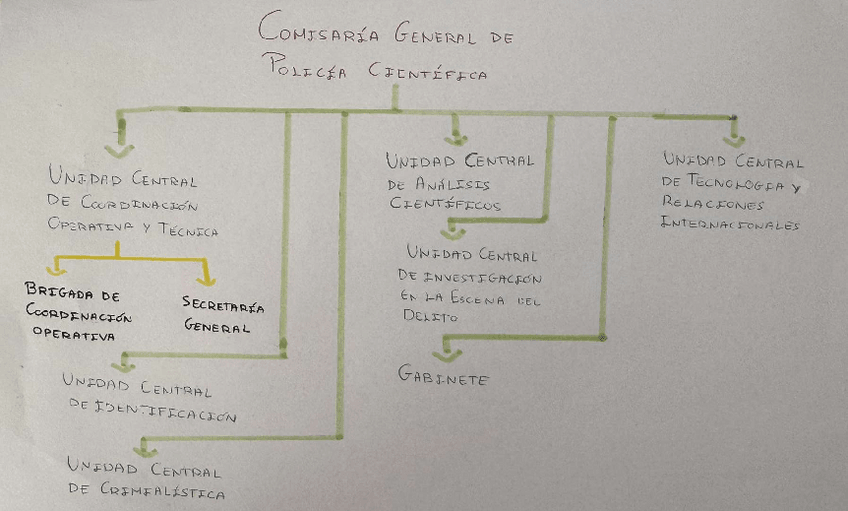 COMISARÍA GENERAL DE
POLICÍA CIENTÍFICA
UNIDAD CENTRAL
DE COORDINACIÓN
OPERATIVA Y TÉCNICA
BRIGADA DE
COORDINACIÓN
OPERATIVA
SECRETARÍA
GENERAL
UNIDAD CENTRAL
DE IDENTIFICACIÓN
UNIDAD CENTRAL
DE CRIMIALÍSTICA
UNIDAD CENTRAL
DE ANÁLISIS
CIENTÍFICOS
UNIDAD CENTRAL
DE INVESTIGACIÓN
EN LA ESCENA DEL
DELITO
GABINETE
UNIDAD CENTRAL
DE TECNOLOGIA Y
RELACIONES
INTERNACIONALES